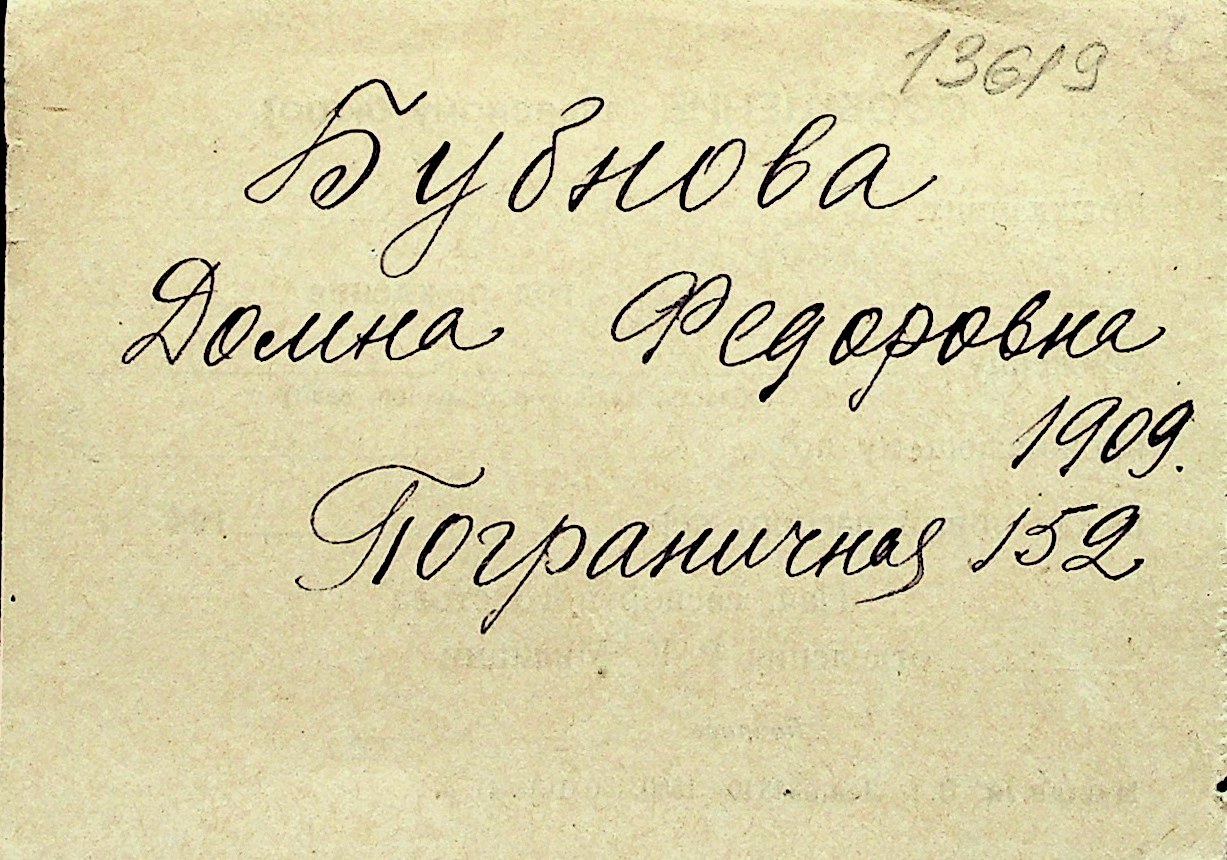 13619
Бубнова
Домна Федоровна
1909.
Пограничная 152